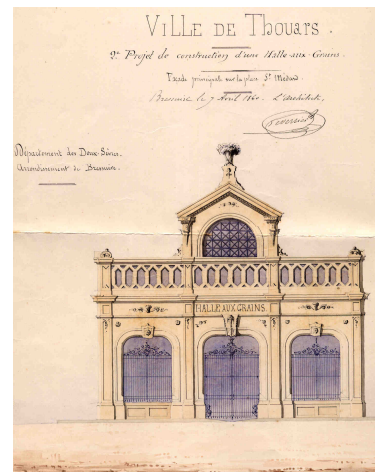 VILLE DE THOUARS.
2e Projet de construction d'une Halle-aux-Grains.
Façade principale sur la place St Médard
Bressuire le 7 Avril 1860. L'Architecte,
Département des Deux-Sèvres.
Arrondissement de Bressuire.
HALLE AUX GRAINS